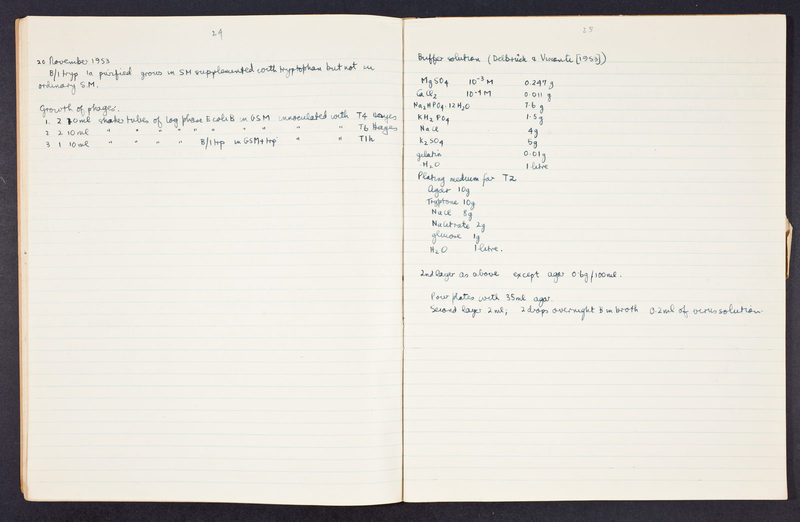 24
20 November 1953
B/1 tryp 1a purified grows in SM supplemented with tryptophan but not in
ordinary S.M.
Growth of phages.
1. 2 10ml shake tubes of log phase E coli B in GSM innoculated with T4
2 2 10 ml " " " " " " " " " " T6
3 1 10 ml " " " " B/1 trp in GSM+trp " " T1h
25
Buffer solution (Delbrück & Visconti [1953])
MgSO4 10⁻³ M 0.247 g
CaCl2 10⁻⁴ M 0.011 g
Na2HPO4.12H2O 7.6 g
KH2PO4 1.5 g
NaCl 4g
K2SO4 5g
gelatin 0.01g
H2O 1 litre
Plating medium for T2
Agar 10g
Tryptone 10g
NaCl 8g
Na citrate 2g
glucose 1g
H2O 1 litre.
2nd layer as above except agar 0.6g/100ml.
Pour plates with 35ml agar.
Second layer 2ml; 2 drops overnight B in broth 0.2ml of virus solution